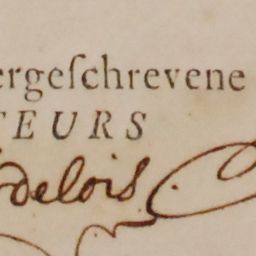 ergeſchrevene
TEURS
delois